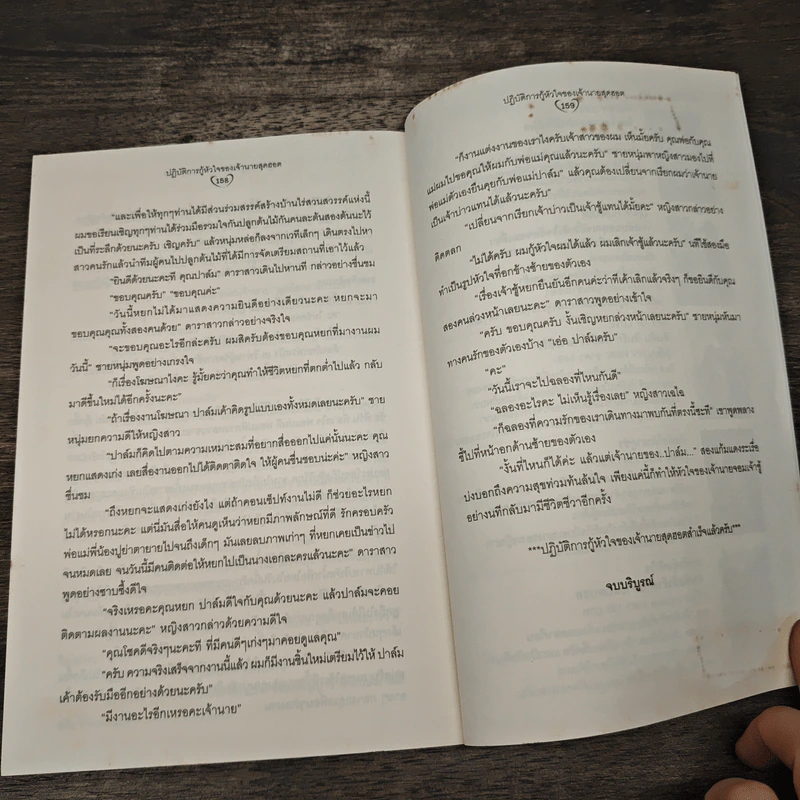 ปฏิบัติการกู้หัวใจของเจ้านายสุดฮอต
158
"และเพื่อให้ทุกๆท่านได้มีส่วนร่วมสรรค์สร้างบ้านไร่สวนสวรรค์แห่งนี้
ผมขอเรียนเชิญทุกๆท่านได้ร่วมมือรวมใจกันปลูกต้นไม้กันคนละต้นสองต้นนะไว้
เป็นที่ระลึกด้วยนะครับ เชิญครับ" แล้วหนุ่มหล่อก็ลงจากเวทีเล็กๆ เดินตรงไปหา
สาวคนรักแล้วนำทีมผู้คนไปปลูกต้นไม้ที่ได้มีการจัดเตรียมสถานที่เอาไว้แล้ว
"ยินดีด้วยนะคะที คุณปาล์ม" ดาราสาวเดินไปหานที กล่าวอย่างชื่นชม
"ขอบคุณครับ" "ขอบคุณค่ะ"
"วันนี้หยกไม่ได้มาแสดงความยินดีอย่างเดียวนะคะ หยกจะมา
ขอบคุณคุณทั้งสองคนด้วย" ดาราสาวกล่าวอย่างจริงใจ
"จะขอบคุณอะไรอีกล่ะครับ ผมสิครับต้องขอบคุณหยกที่มางานผม
วันนี้" ชายหนุ่มพูดอย่างเกรงใจ
"ก็เรื่องโฆษณาไงคะ รู้มั้ยคะว่าคุณทำให้ชีวิตหยกที่ตกต่ำไปแล้ว กลับ
มาดีขึ้นใหม่ได้อีกครั้งนะคะ"
"ถ้าเรื่องงานโฆษณา ปาล์มเค้าคิดรูปแบบเองทั้งหมดเลยนะครับ" ชาย
หนุ่มยกความดีให้หญิงสาว
"ปาล์มก็คิดไปตามความเหมาะสมที่อยากสื่อออกไปแค่นั้นนะคะ คุณ
หยกแสดงเก่ง เลยสื่องานออกไปได้ติดตาติดใจ ให้ผู้คนชื่นชอบน่ะค่ะ" หญิงสาว
ชื่นชม
"ถึงหยกจะแสดงเก่งยังไง แต่ถ้าคอนเซ็ปท์งานไม่ดี ก็ช่วยอะไรหยก
ไม่ได้หรอกนะคะ แต่นี่มันสื่อให้คนดูเห็นว่าหยกมีภาพลักษณ์ที่ดี รักครอบครัว
พ่อแม่พี่น้องปู่ย่าตายายไปจนถึงเด็กๆ มันเลยลบภาพเก่าๆ ที่หยกเคยเป็นข่าวไป
จนหมดเลย จนวันนี้มีคนติดต่อให้หยกไปเป็นนางเอกละครแล้วนะคะ" ดาราสาว
พูดอย่างซาบซึ้งดีใจ
"จริงเหรอคะคุณหยก ปาล์มดีใจกับคุณด้วยนะคะ แล้วปาล์มจะคอย
ติดตามผลงานนะคะ" หญิงสาวกล่าวด้วยความดีใจ
"คุณโชคดีจริงๆนะคะที ที่มีคนดีๆเก่งๆมาคอยดูแลคุณ"
"ครับ ความจริงเสร็จจากงานนี้แล้ว ผมก็มีงานชิ้นใหม่เตรียมไว้ให้ ปาล์ม
เค้าต้องรับมืออีกอย่างด้วยนะครับ"
"มีงานอะไรอีกเหรอคะเจ้านาย"
ปฏิบัติการกู้หัวใจของเจ้านายสุดฮอต
159
"ก็งานแต่งงานของเราไงครับเจ้าสาวของผม เห็นมั้ยครับ คุณพ่อกับคุณ
แม่ผมไปขอคุณให้ผมกับพ่อแม่คุณแล้วนะครับ" ชายหนุ่มพาหญิงสาวมองไปที่
พ่อแม่ตัวเองยืนคุยกับพ่อแม่ปาล์ม" แล้วคุณต้องเปลี่ยนจากเรียกผมว่าเจ้านาย
เป็นเจ้าบ่าวแทนได้แล้วนะครับ"
"เปลี่ยนจากเรียกเจ้าบ่าวเป็นเจ้าชู้แทนได้มั้ยคะ" หญิงสาวกล่าวอย่าง
ติดตลก
"ไม่ได้ครับ ผมกู้หัวใจผมได้แล้ว ผมเลิกเจ้าชู้แล้วนะครับ" นทีใช้สองมือ
ทำเป็นรูปหัวใจที่อกข้างซ้ายของตัวเอง
"เรื่องเจ้าชู้หยกยืนยันอีกคนค่ะว่าทีเค้าเลิกแล้วจริงๆ ก็ขอยินดีกับคุณ
สองคนล่วงหน้าเลยนะคะ" ดาราสาวพูดอย่างเข้าใจ
"ครับ ขอบคุณครับ งั้นเชิญหยกล่วงหน้าเลยนะครับ" ชายหนุ่มหันมา
ทางคนรักของตัวเองบ้าง "เอ่อ ปาล์มครับ"
"คะ"
"วันนี้เราจะไปฉลองที่ไหนกันดี"
"ฉลองอะไรคะ ไม่เห็นรู้เรื่องเลย" หญิงสาวเฉไฉ
"ก็ฉลองที่ความรักของเราเดินทางมาพบกันที่ตรงนี้ซะที" เขาพูดพลาง
ชี้ไปที่หน้าอกด้านซ้ายของตัวเอง
"งั้นที่ไหนก็ได้ค่ะ แล้วแต่เจ้านายของ..ปาล์ม..." สองแก้มแดงระเรื่อ
บ่งบอกถึงความสุขท่วมท้นล้นใจ เพียงแค่นี้ก็ทำให้หัวใจของเจ้านายจอมเจ้าชู้
อย่างนทีกลับมามีชีวิตชีวาอีกครั้ง
***ปฏิบัติการกู้หัวใจของเจ้านายสุดฮอตสำเร็จแล้วครับ***
จบบริบูรณ์